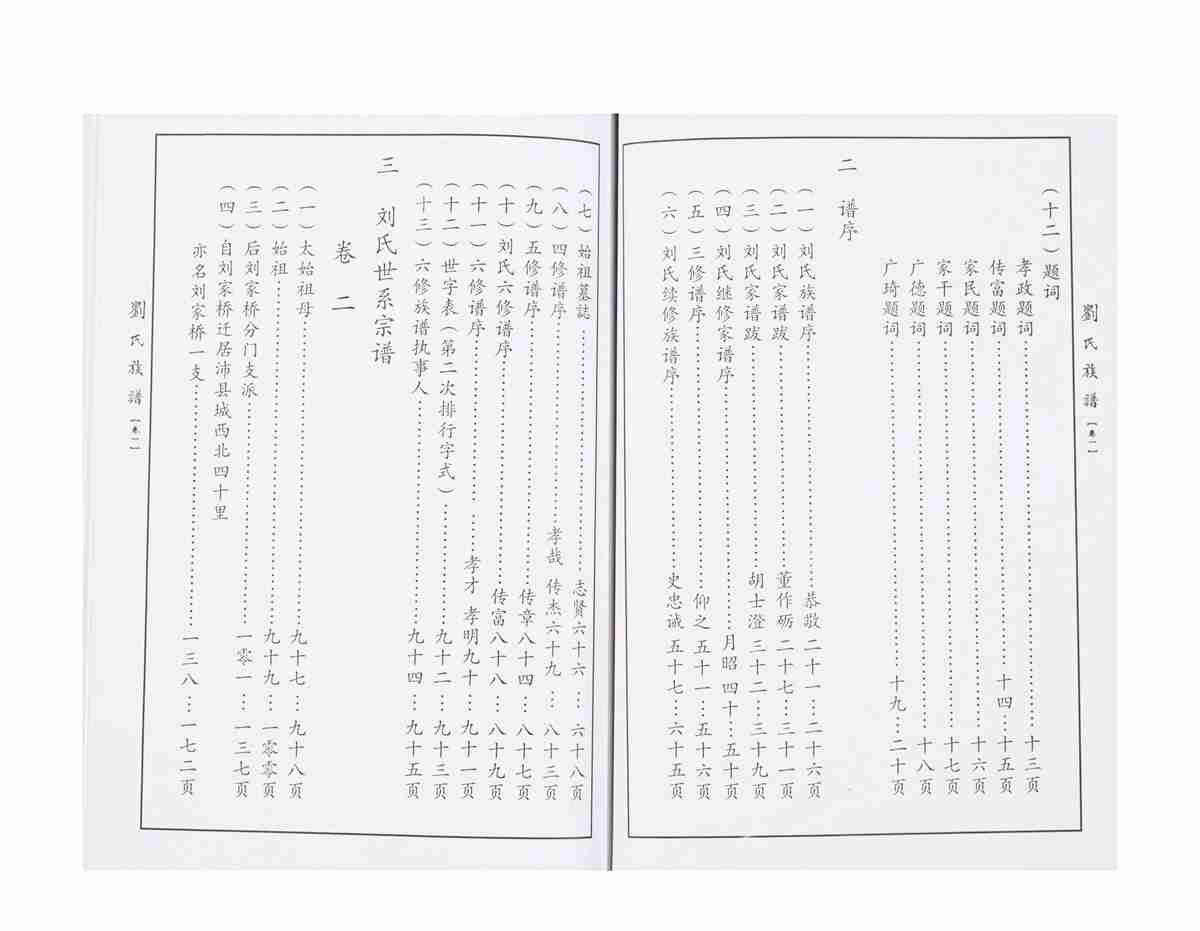 劉氏族譜【卷一】
（十二）题词
孝政题词……十三页
传富题词……十四…十五页
家民题词……十六页
家干题词……十七页
广德题词……十八页
广琦题词……十九…二十页
二 谱序
（一）刘氏族谱序……恭敬 二十一…二十六页
（二）刘氏家谱跋……董作砺 二十七…三十一页
（三）刘氏家谱跋……胡士澄 三十二…三十九页
（四）刘氏继修家谱序……月昭 四十…五十页
（五）三修谱序……仰之 五十一…五十六页
（六）刘氏续修族谱序……史忠诚 五十七…六十五页
（七）始祖墓誌……志贤六十六…六十八页
（八）四修谱序……孝哉 传杰六十九…八十三页
（九）五修谱序……传章八十四…八十七页
（十）刘氏六修谱序……传富八十八…八十九页
（十一）六修谱序……孝才 孝明九十…九十一页
（十二）世字表（第二次排行字式）……九十二…九十三页
（十三）六修族谱执事人……九十四…九十五页
三 刘氏世系宗谱
卷二
（一）太始祖母……九十七…九十八页
（二）始祖……九十九…一零零页
（三）后刘家桥分门支派……一零一…一三七页
（四）自刘家桥迁居沛县城西北四十里
亦名刘家桥一支……一三八…一七二页
劉氏族譜【卷一】